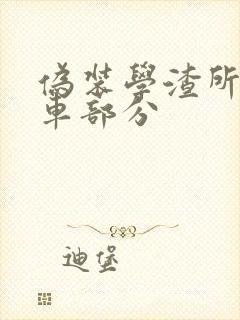 偽裝學渣所
車部分
迪堡